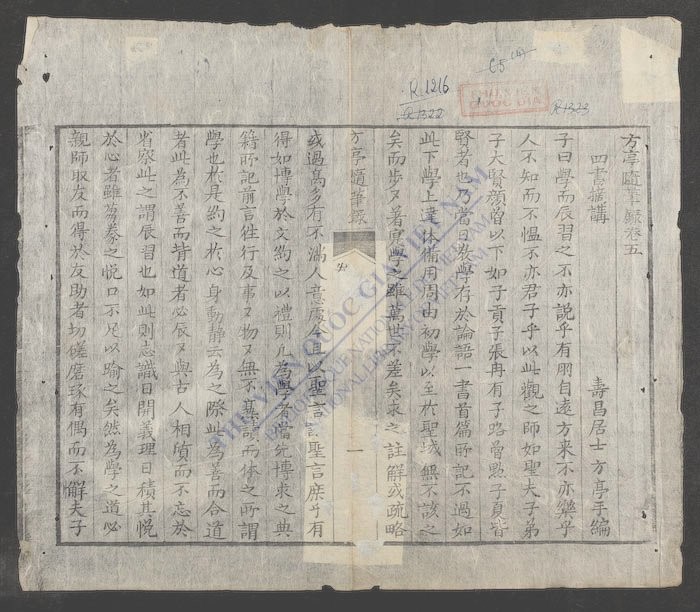 方亭隨筆錄卷五
四書摘講 壽昌居士方亭手編
子曰學而辰習之不亦說乎有朋自遠方来不亦樂乎
人不知而不慍不亦君子乎以此觀之師如聖夫子弟
子大賢顏曾以下如子貢子張冉有子路曾點子夏皆
賢者也乃當日教學存於論語一書首篇所記不過如
此下學上達体備用周由初學以至於聖域無不該之
矣而步又著寔學之雖萬世不差矣求之註解或疏略
方亭隨筆錄
一
或過高多有不滿人意處今且以聖言言聖言庶乎有
得如博學於文約之以禮則凡為學者當先博求之典
籍所記前言徃行及事又物又無不窮該而体之所謂
學也於是約之於心身動静云為之際此為善而合道
者此為不善而背道者必辰又與古人相頃而不忘於
省察此之謂辰習也如此則志識日開義理日積其悅
於心者雖芻豢之悅口不足以喻之矣然為學之道必
親師取友而得於友助者切磋磨琢有偶而不懈夫子
R.1216
R.1322
R.1323
THƯ VIỆN
QUỐC GIA
THƯ VIỆN QUỐC GIA VIỆT NAM
BIBLIOTHÈQUE NATIONALE DU VIETNAM
NATIONAL LIBRARY OF VIETNAM